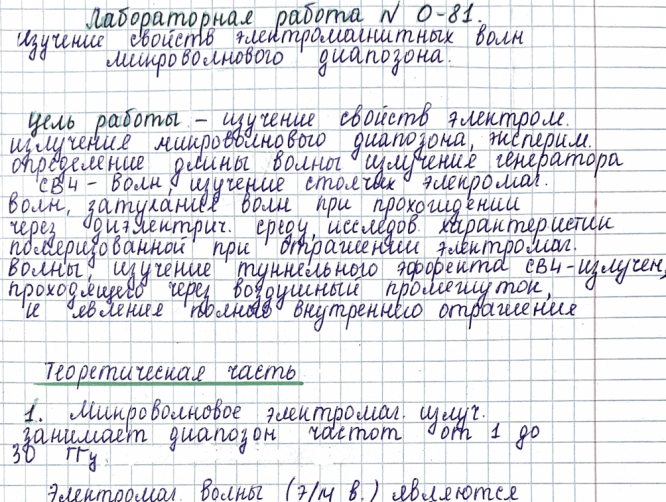 Лабораторная работа N О-81.
Изучение свойств электромагнитных волн
микроволнового диапозона.
Цель работы – изучение свойств электром.
излучение микроволнового диапозона, эксперим.
определение длины волны излучения генератора
СВЧ – волн, изучение стоячих элекромаг.
волн, затухание волн при прохождении
через диэлектрич. среду, исследов. характеристии
поляризованной при отражении электромаг.
волны, изучение туннельного эффекта СВЧ-излучен,
проходящего через воздушный промежуток,
и явление полного внутреннего отражение
Теоретическая часть
1. Микроволновое электромаг. излуч.
занимает диапозон частот от 1 до
30 ГГц
Электромаг. волны (э/м в.) являются